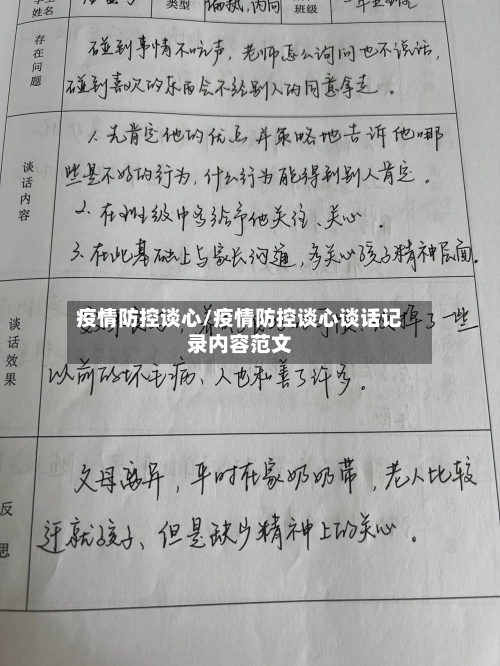 学生
姓名
类型
偏执,内向
班级
存在问题
碰到事情不吭声,老师怎么询问也不说话,
碰到喜欢的东西会不经别人的同意拿走。
谈话内容
1、先肯定他的优点并策略地告诉他哪
些是不好的行为,什么行为能得到别人肯定。
2、在班级中多给予他关注、关心。
3、在此基础上与家长沟通,多关心孩子精神层面。
谈话效果
疫情防控谈心/疫情防控谈心谈话记
录内容范文
掉了一些
以前的坏毛病、人也和善了许多。
反思
父母离异,平时在家奶奶带,老人比较
迁就孩子、但是缺少精神上的关心。